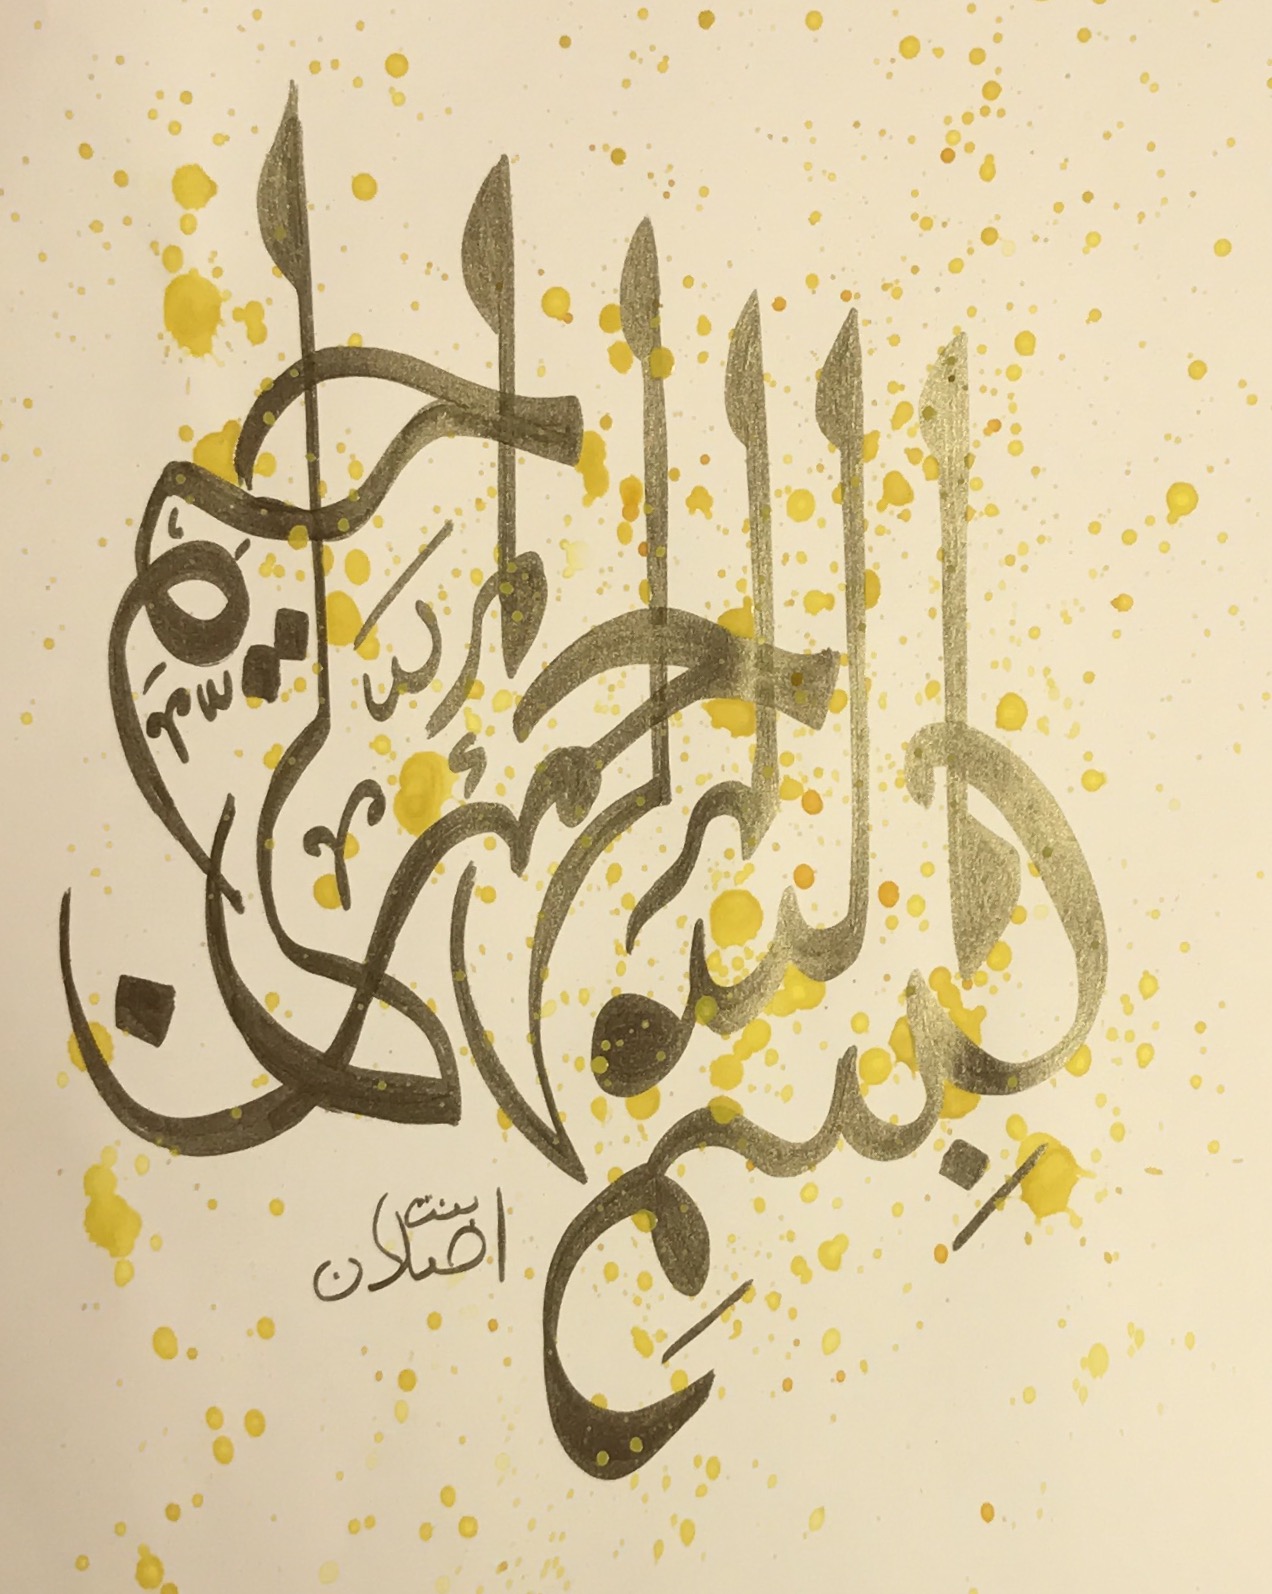 بسم الله الرحمن الرحيم
بنت اصلان